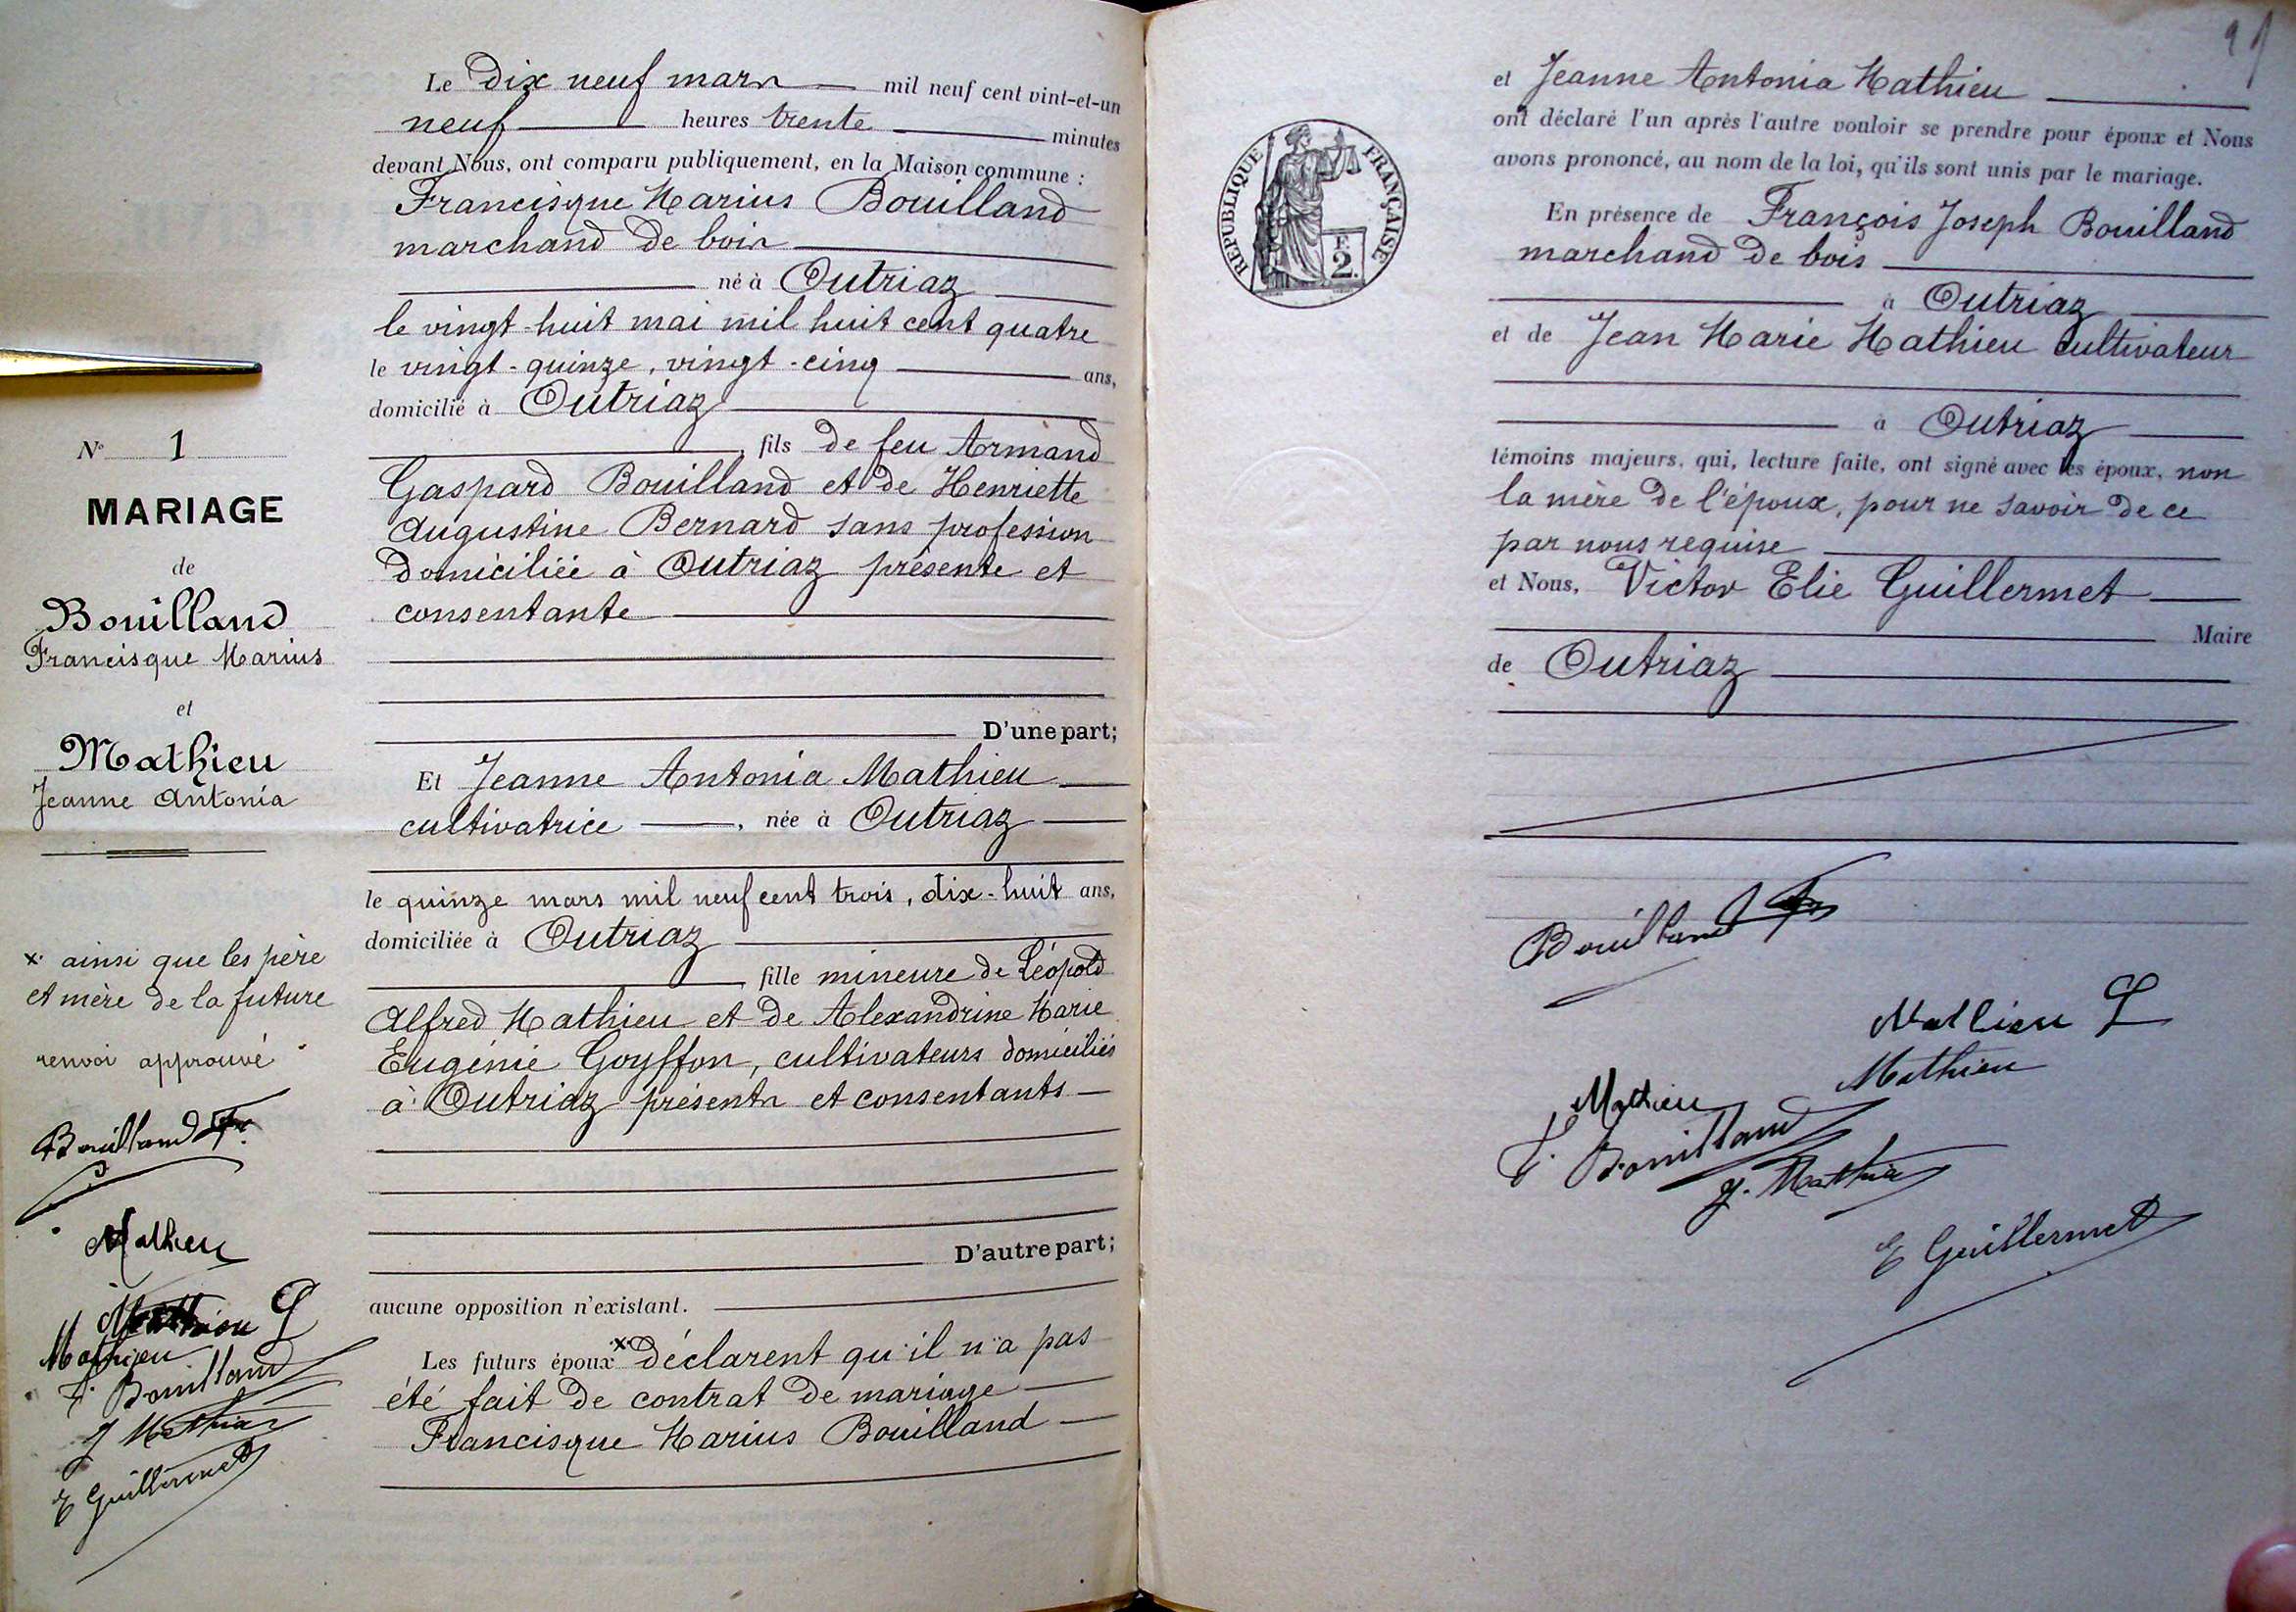 Le Dix neuf mars mil neuf cent vint-et-un
neuf heures trente minutes
devant Nous, ont comparu publiquement, en la Maison commune :
Francisque Marius Bouilland
marchand de bois
né à Outriaz
le vingt-huit mai mil huit cent quatre
le vingt-quinze, vingt-cinq ans,
domicilié à Outriaz
, fils de feu Armand
Gaspard Bouilland et de Henriette
Augustine Bernard sans profession
domiciliée à Outriaz présente et
consentante
D'une part;
Et Jeanne Antonia Mathieu
cultivatrice, née à Outriaz
le quinze mars mil neuf cent trois, dix-huit ans,
domiciliée à Outriaz
, fille mineure de Léopold
Alfred Mathieu et de Alexandrine Marie
Eugénie Goyffon, cultivateurs domiciliés
à Outriaz présents et consentants
D'autre part;
aucune opposition n'existant.
Les futurs époux x déclarent qu'il n'a pas
été fait de contrat de mariage
Francisque Marius Bouilland
N° 1
MARIAGE
de
Bouilland
Francisque Marius
et
Mathieu
Jeanne Antonia
x ainsi que les père
et mère de la future
renvoi approuvé
Bouilland Fr
Mathieu
Mathieu L
Mathieu
F. Bouilland
J Mathieu
E Guillermet
et Jeanne Antonia Mathieu
ont déclaré l'un après l'autre vouloir se prendre pour époux et Nous
avons prononcé, au nom de la loi, qu'ils sont unis par le mariage.
En présence de François Joseph Bouilland
marchand de bois
à Outriaz
et de Jean Marie Mathieu cultivateur
à Outriaz
témoins majeurs, qui, lecture faite, ont signé avec les époux, non
la mère de l'époux, pour ne savoir de ce
par nous requise
et Nous, Victor Elie Guillermet
Maire
de Outriaz
RÉPUBLIQUE FRANÇAISE
F.
2.
Bouilland Fr
Mathieu L
Mathieu
Mathieu
F. Bouilland
J. Mathieu
E Guillermet